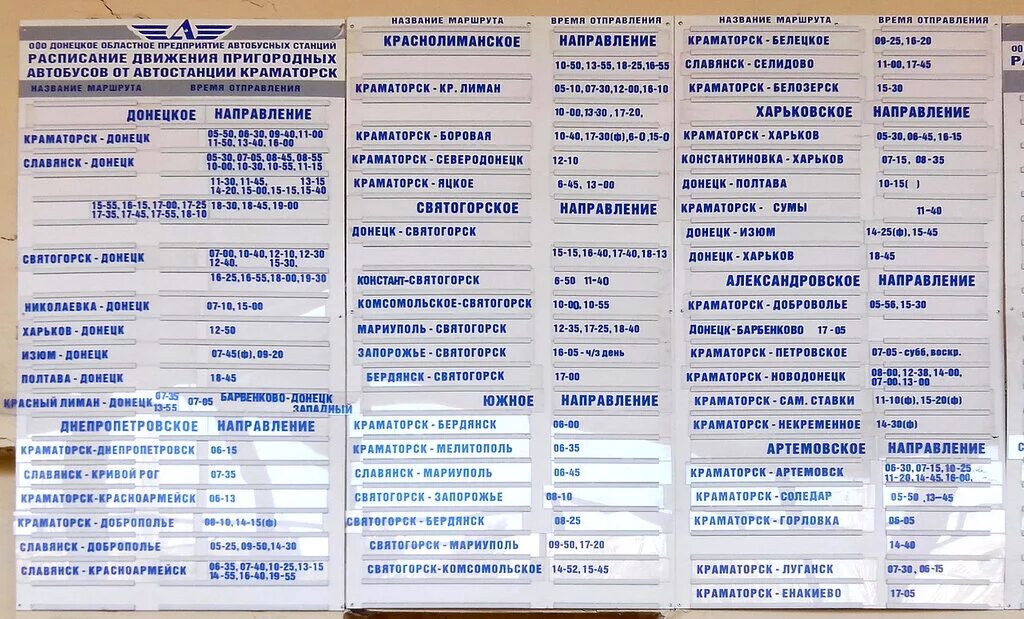 ООО ДОНЕЦКОЕ ОБЛАСТНОЕ ПРЕДПРИЯТИЕ АВТОБУСНЫХ СТАНЦИЙ
РАСПИСАНИЕ ДВИЖЕНИЯ ПРИГОРОДНЫХ
АВТОБУСОВ ОТ АВТОСТАНЦИИ КРАМАТОРСК
НАЗВАНИЕ МАРШРУТА ВРЕМЯ ОТПРАВЛЕНИЯ
ДОНЕЦКОЕ НАПРАВЛЕНИЕ
КРАМАТОРСК - ДОНЕЦК 05-50, 06-30, 09-40, 11-00
11-50, 13-40, 16-00
СЛАВЯНСК - ДОНЕЦК 05-30, 07-05, 08-45, 08-55
10-00, 10-30, 10-55, 11-15
11-30, 11-45, 13-15
14-20, 15-00, 15-15, 15-40
15-55, 16-15, 17-00, 17-25 18-30, 18-45, 19-00
17-35, 17-45, 17-55, 18-10
СВЯТОГОРСК - ДОНЕЦК 07-00, 10-40, 12-10, 12-30
12-40. 15-30,
16-25, 16-55, 18-00, 19-30
НИКОЛАЕВКА - ДОНЕЦК 07-10, 15-00
ХАРЬКОВ - ДОНЕЦК 12-50
ИЗЮМ - ДОНЕЦК 07-45(ф), 09-20
ПОЛТАВА - ДОНЕЦК 18-45
КРАСНЫЙ ЛИМАН - ДОНЕЦК 07-35 07-05 БАРВЕНКОВО-ДОНЕЦК
13-55 ЗАПАДНЫЙ
ДНЕПРОПЕТРОВСКОЕ НАПРАВЛЕНИЕ
КРАМАТОРСК-ДНЕПРОПЕТРОВСК 06-15
СЛАВЯНСК - КРИВОЙ РОГ 07-35
КРАМАТОРСК-КРАСНОАРМЕЙСК 06-13
КРАМАТОРСК - ДОБРОПОЛЬЕ 08-10, 14-15(ф)
СЛАВЯНСК - ДОБРОПОЛЬЕ 05-25, 09-50, 14-30
СЛАВЯНСК - КРАСНОАРМЕЙСК 06-35, 07-40, 10-25, 13-15
14-55, 16-40, 19-55
НАЗВАНИЕ МАРШРУТА ВРЕМЯ ОТПРАВЛЕНИЯ
КРАСНОЛИМАНСКОЕ НАПРАВЛЕНИЕ
10-50, 13-55, 18-25, 16-55
КРАМАТОРСК - КР. ЛИМАН 05-10, 07-30, 12-00, 16-10
10-00, 13-30, 17-20,
КРАМАТОРСК - БОРОВАЯ 10-40, 17-30(ф), 6-0, 15-0
КРАМАТОРСК - СЕВЕРОДОНЕЦК 12-10
КРАМАТОРСК - ЯЦКОЕ 6-45, 13-00
СВЯТОГОРСКОЕ НАПРАВЛЕНИЕ
ДОНЕЦК - СВЯТОГОРСК
15-15, 16-40, 17-40, 18-13
КОНСТАНТ-СВЯТОГОРСК 6-50 11-40
КОМСОМОЛЬСКОЕ-СВЯТОГОРСК 10-00, 10-55
МАРИУПОЛЬ - СВЯТОГОРСК 12-35, 17-25, 18-40
ЗАПОРОЖЬЕ - СВЯТОГОРСК 16-05 - ч/з день
БЕРДЯНСК - СВЯТОГОРСК 17-00
ЮЖНОЕ НАПРАВЛЕНИЕ
КРАМАТОРСК - БЕРДЯНСК 06-00
КРАМАТОРСК - МЕЛИТОПОЛЬ 06-35
СЛАВЯНСК - МАРИУПОЛЬ 06-45
СВЯТОГОРСК - ЗАПОРОЖЬЕ 08-10
СВЯТОГОРСК - БЕРДЯНСК 08-25
СВЯТОГОРСК - МАРИУПОЛЬ 09-50, 17-20
СВЯТОГОРСК - КОМСОМОЛЬСКОЕ 14-52, 15-45
НАЗВАНИЕ МАРШРУТА ВРЕМЯ ОТПРАВЛЕНИЯ
КРАМАТОРСК - БЕЛЕЦКОЕ 09-25, 16-20
СЛАВЯНСК - СЕЛИДОВО 11-00, 17-45
КРАМАТОРСК - БЕЛОЗЕРСК 15-30
ХАРЬКОВСКОЕ НАПРАВЛЕНИЕ
КРАМАТОРСК - ХАРЬКОВ 05-30, 06-45, 16-15
КОНСТАНТИНОВКА - ХАРЬКОВ 07-15, 08-35
ДОНЕЦК - ПОЛТАВА 10-15( )
КРАМАТОРСК - СУМЫ 11-40
ДОНЕЦК - ИЗЮМ 14-25(ф), 15-45
ДОНЕЦК - ХАРЬКОВ 18-45
АЛЕКСАНДРОВСКОЕ НАПРАВЛЕНИЕ
КРАМАТОРСК - ДОБРОВОЛЬЕ 05-56, 15-30
ДОНЕЦК-БАРБЕНКОВО 17-05
КРАМАТОРСК - ПЕТРОВСКОЕ 07-05 - субб, воскр.
КРАМАТОРСК - НОВОДОНЕЦК 08-00, 12-38, 14-00,
07-00. 13-00
КРАМАТОРСК - САМ. СТАВКИ 11-10(ф), 15-20(ф)
КРАМАТОРСК - НЕКРЕМЕННОЕ 14-30(ф)
АРТЕМОВСКОЕ НАПРАВЛЕНИЕ
КРАМАТОРСК - АРТЕМОВСК 06-30, 07-15, 10-25
11-20, 14-45, 16-00,
КРАМАТОРСК - СОЛЕДАР 05-50, 13-45
КРАМАТОРСК - ГОРЛОВКА 06-05
14-40
КРАМАТОРСК - ЛУГАНСК 07-30, 06-15
КРАМАТОРСК - ЕНАКИЕВО 17-05